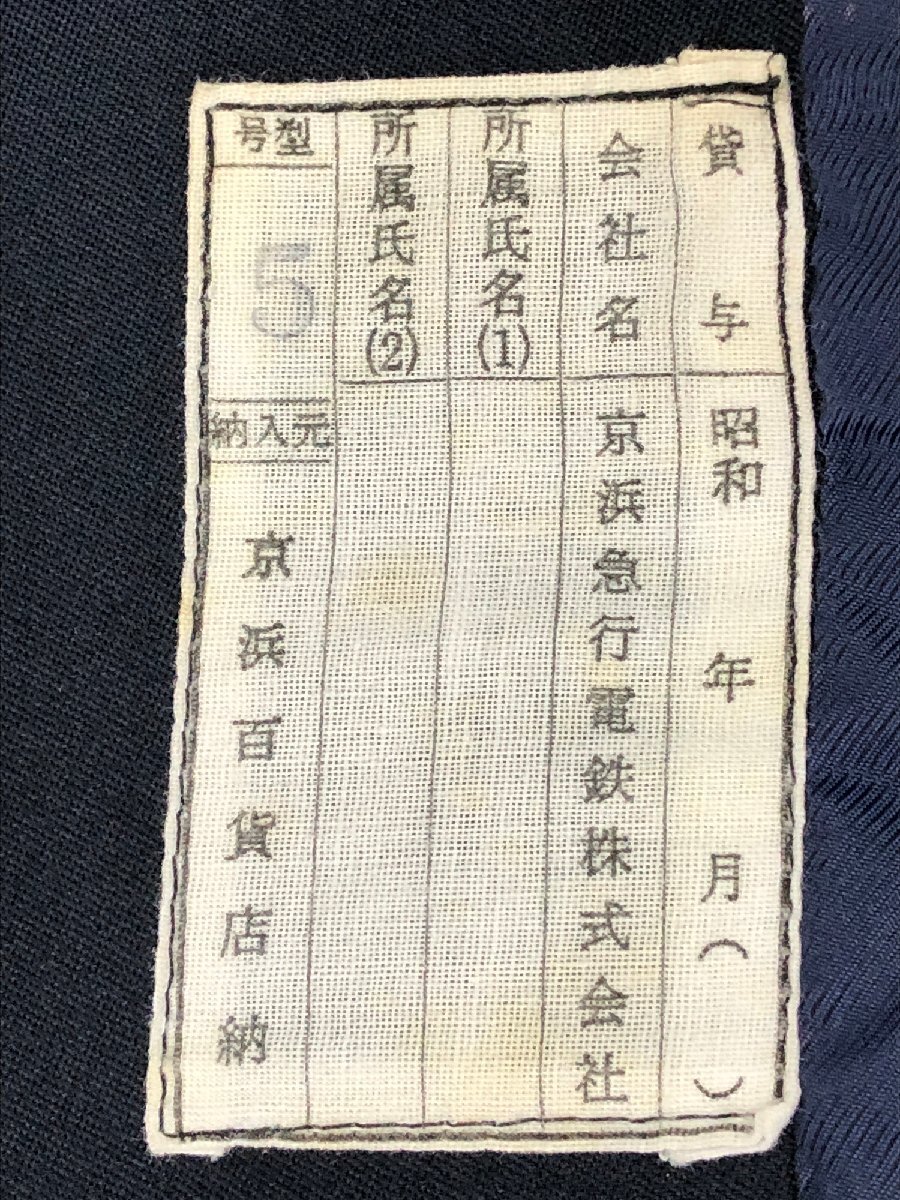 貸与
昭和 年 月( )
会社名
京浜急行電鉄株式会社
所属氏名(1)
所属氏名(2)
号型
5
納入元
京浜百貨店納